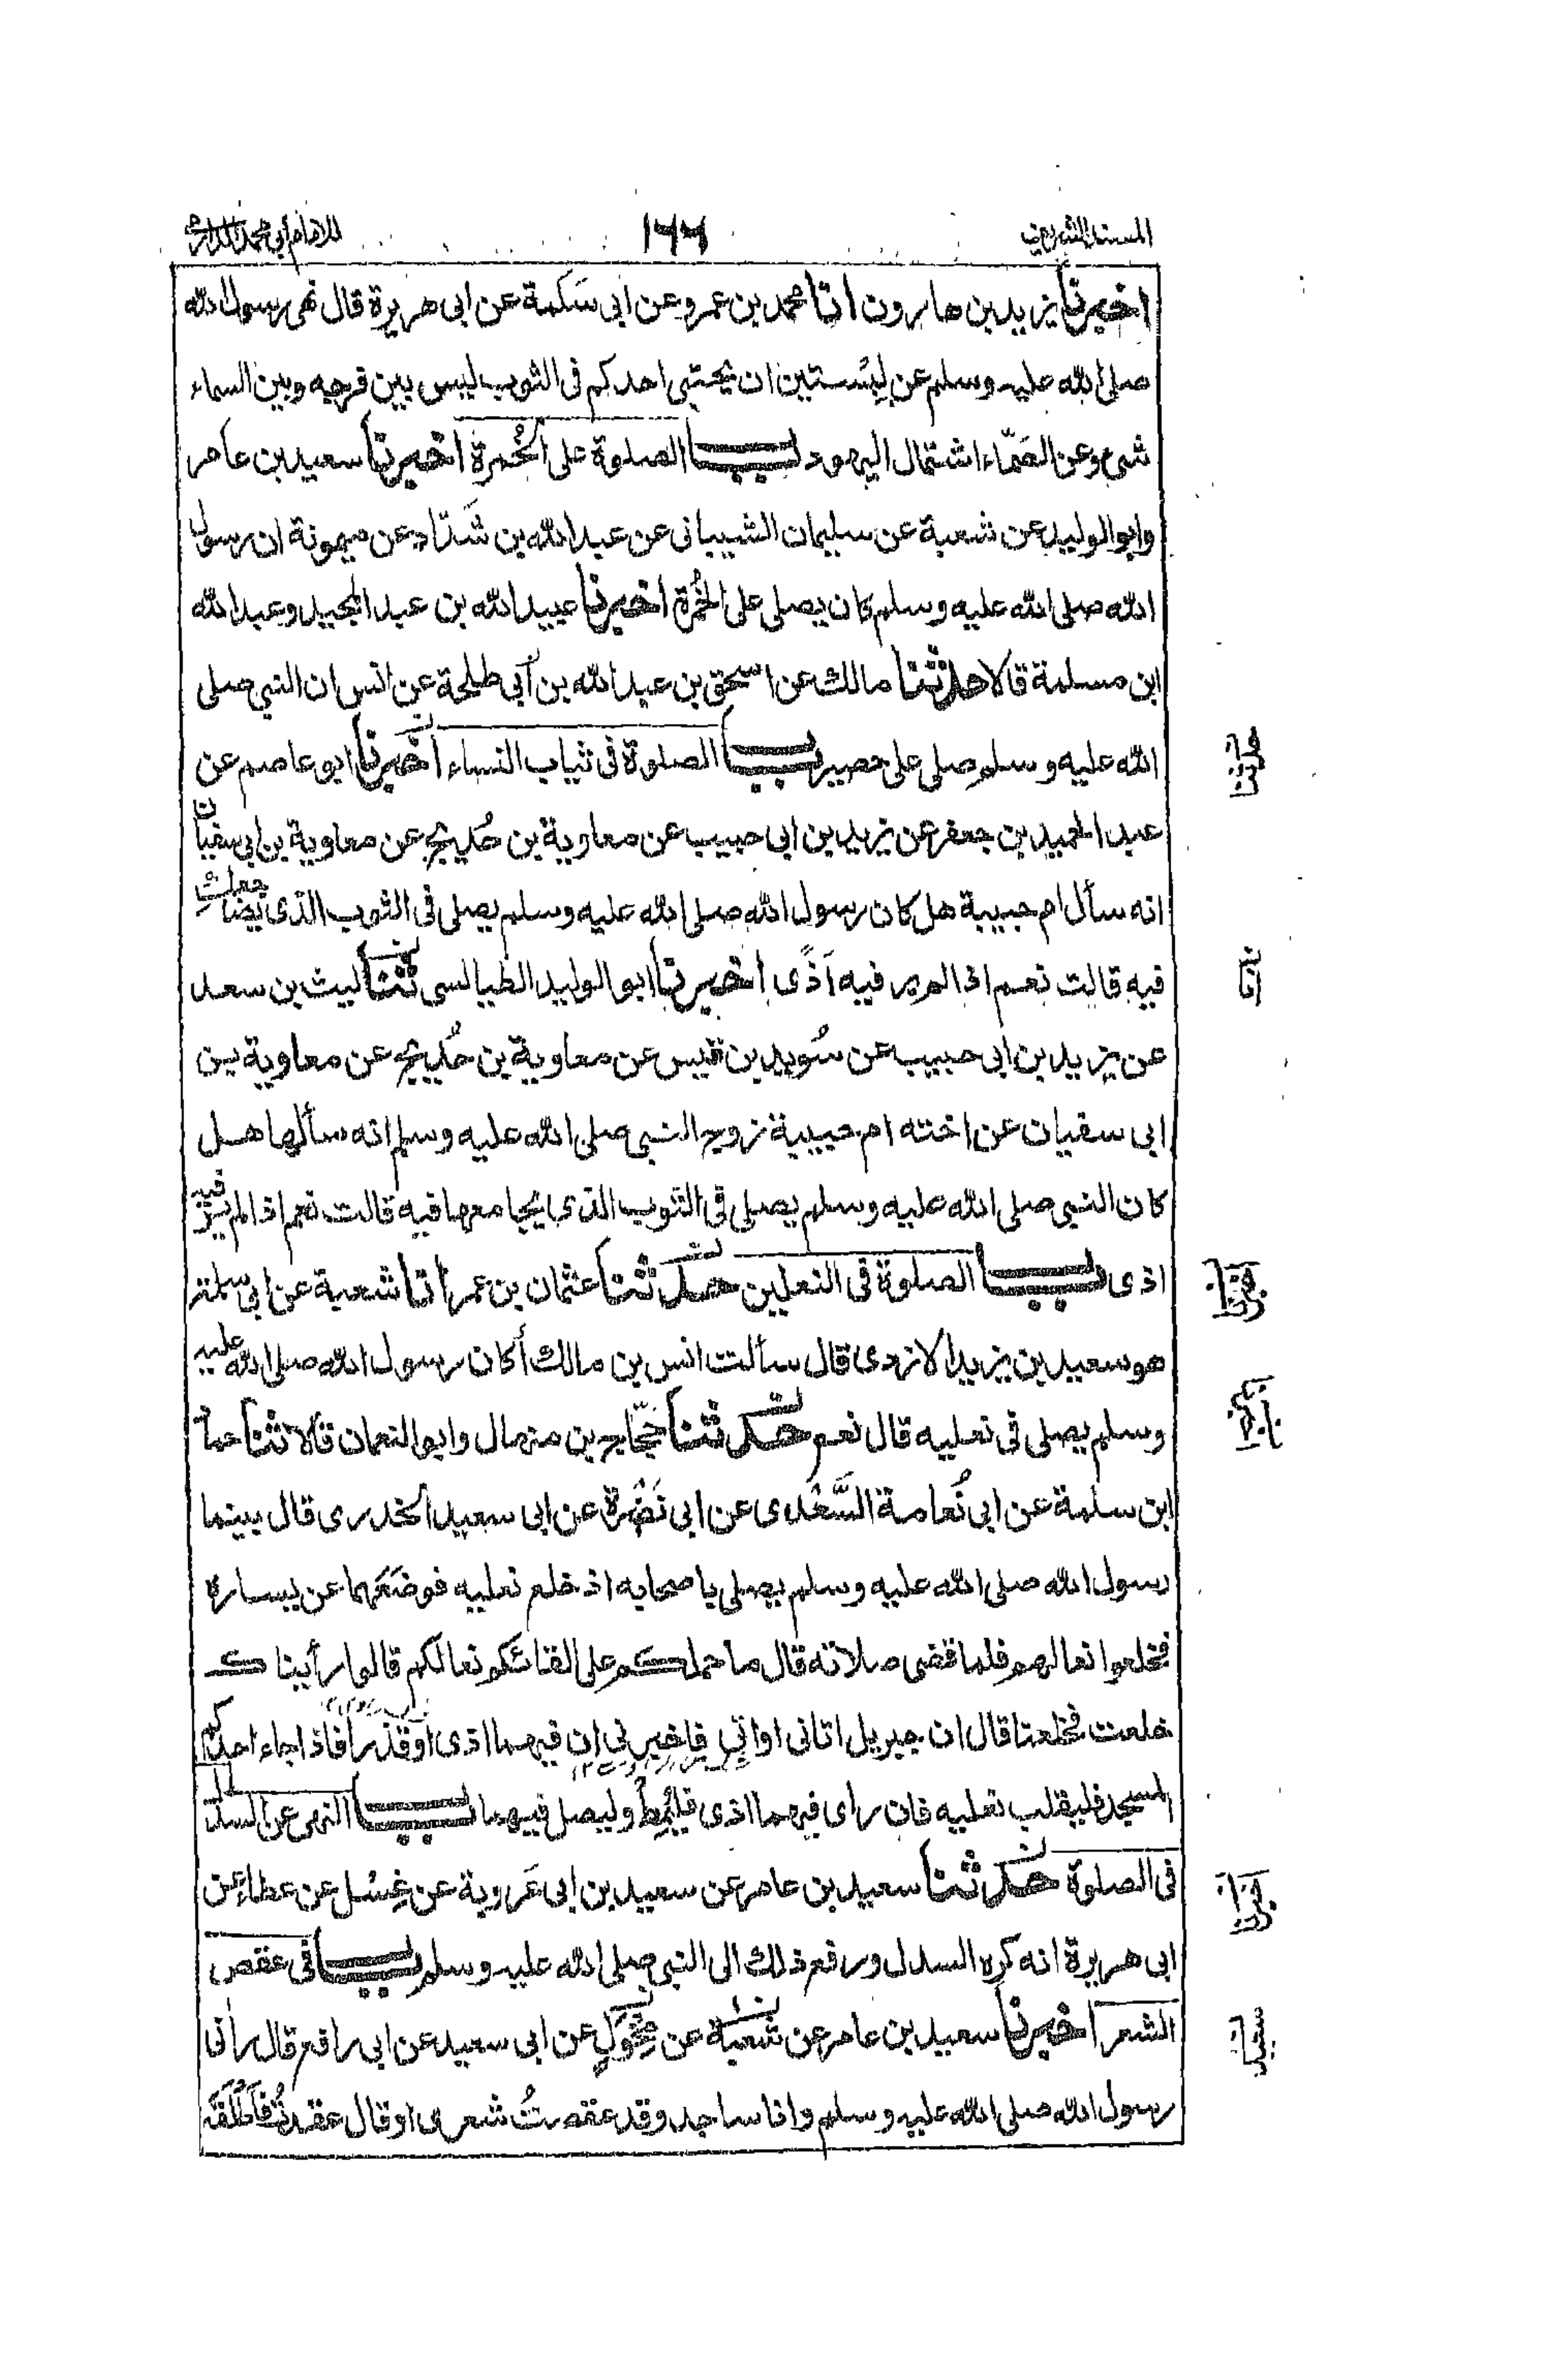 المسند الشريف ١٦٦ للامام ابى محمد الدارمى
اخبرنا يزيد بن هارون انا محمد بن عمرو عن ابى سَلمة عن ابى هريرة قال نهى رسول الله
صلى الله عليه وسلم عن لِبْستين ان يحتبى احدكم فى الثوب ليس بين فرجه وبين السماء
شىء وعن الصَمّاء اشتمال اليهود باب الصلوة على الخُمرة اخبرنا سعيد بن عامر
وابو الوليد عن شعبة عن سليمان الشيبانى عن عبد الله بن شَدّاد عن ميمونة ان رسول
الله صلى الله عليه وسلم كان يصلى على الخُمرة اخبرنا عبيد الله بن عبد المجيد وعبد الله
ابن مسلمة قالا حدثنا مالك عن اسحق بن عبد الله بن أبى طلحة عن انس ان النبى صلى
الله عليه وسلم صلى على حصير باب الصلوة فى ثياب النساء اخبرنا ابو عاصم عن
حدثنا
عبد الحميد بن جعفر عن يزيد بن ابى حبيب عن معاوية بن حُديج عن معاوية بن ابى سفيان
انه سأل ام حبيبة هل كان رسول الله صلى الله عليه وسلم يصلى فى الثوب الذى يضاجعك
فيه قالت نعم اذا لم ير فيه اَذًى اخبرنا ابو الوليد الطيالسى ثنا ليث بن سعد
انا
عن يزيد بن ابى حبيب عن سُويد بن قيس عن معاوية بن حُديج عن معاوية بن
ابى سفيان عن اخته ام حبيبة زوج النبى صلى الله عليه وسلم انه سألها هل
كان النبى صلى الله عليه وسلم يصلى فى الثوب الذى يجامعها فيه قالت نعم اذا لم ير فيه
اذى باب الصلوة فى النعلين حدثنا عثمان بن عمر انا شعبة عن ابى سلمة
اخبرنا
هو سعيد بن يزيد الازدى قال سألت انس بن مالك أكان رسول الله صلى الله عليه
وسلم يصلى فى نعليه قال نعم حدثنا حَجّاج بن منهال وابو النعمان قالا ثنا حماد
ابن سلمة عن ابى نُعامة السَّعْدى عن ابى نَضْرة عن ابى سعيد الخدرى قال بينما
رسول الله صلى الله عليه وسلم يصلى باصحابه اذ خلع نعليه فوضَعَهما عن يساره
فخلعوا نعالهم فلما قضى صلاته قال ما حملكم على القائكم نعالكم قالوا رأيناك
خلعت فخلعنا قال ان جبريل اتانى او اتٍ فاخبرنى ان فيهما اذى او قَذَرا فاذا جاء احدكم
المسجد فليقلب نعليه فان راى فيهما اذى فليُمِطْ وليصل فيهما باب النهى عن السدل
فى الصلوة حدثنا سعيد بن عامر عن سعيد بن ابى عَروبة عن عِسْل عن عطاء عن
اخبرنا
ابى هريرة انه كره السدل ورفع ذلك الى النبى صلى الله عليه وسلم باب فى عقص
الشعر اخبرنا سعيد بن عامر عن شعبة عن مِخْوَلٍ عن ابى سعيد عن ابى رافع قال راٰنى
سعيد
رسول الله صلى الله عليه وسلم وانا ساجد وقد عقصتُ شعرى او قال عقدتُ فاَطلَقَه